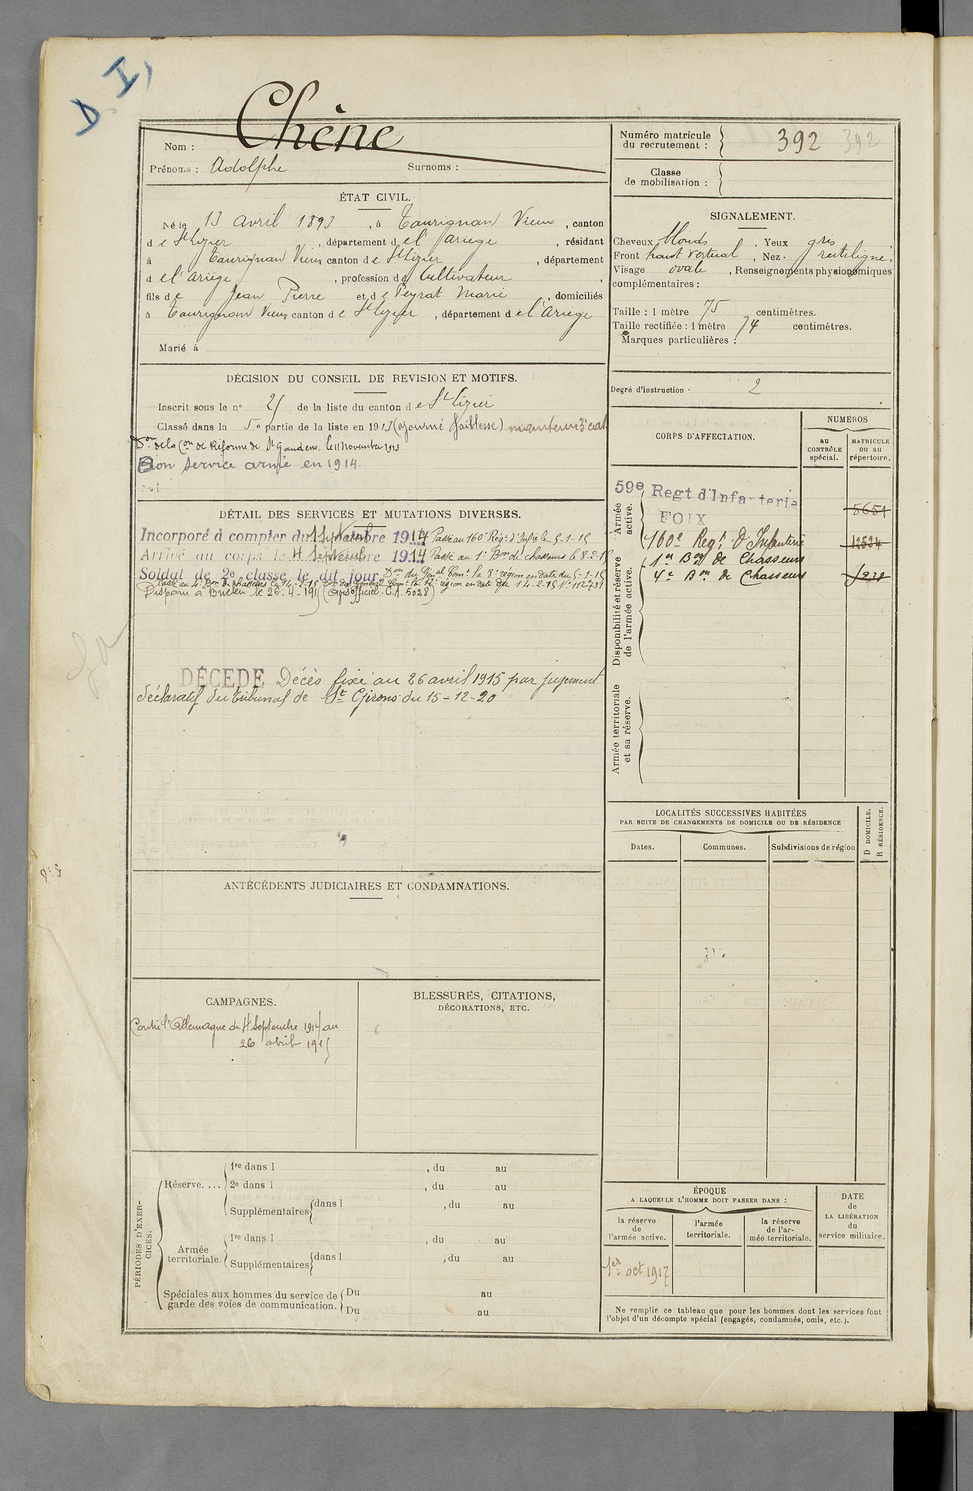 D. I,
Nom : Chêne
Prénoms : Adolphe Surnoms :
Numéro matricule
du recrutement : 392 392
Classe
de mobilisation :
ÉTAT CIVIL.
Né le 13 avril 1893, à Taurignan Vieux, canton
de St Lizier, département de l'Ariège, résidant
à Taurignan Vieux canton de St Lizier, département
de l'Ariège, profession de Cultivateur,
fils de Jean Pierre et de Peyrat Marie, domiciliés
à Taurignan Vieux canton de St Lizier, département de l'Ariège
Marié à
SIGNALEMENT.
Cheveux blonds, Yeux gris,
Front haut vertical, Nez. rectiligne,
Visage ovale, Renseignements physionomiques
complémentaires :
Taille : 1 mètre 75 centimètres.
Taille rectifiée : 1 mètre 74 centimètres.
Marques particulières :
Degré d'instruction · 2
DÉCISION DU CONSEIL DE REVISION ET MOTIFS.
Inscrit sous le n° 25 de la liste du canton de St Lizier
Classé dans la 5e partie de la liste en 1913 (ajourné faiblesse)
Don de la Con de Réforme de St Gaudens, le 11 Novembre 1913
Bon service armé en 1914.
CORPS D'AFFECTATION.
NUMÉROS
au
CONTRÔLE
spécial.
MATRICULE
ou au
répertoire.
Armée
active.
59e Regt d'Infanterie 5651
FOIX
160e Regt d'Infanterie 12534
Disponibilité et réserve
de l'armée active.
1er Bon de Chasseurs
4e Bon de Chasseurs
Armée territoriale
et sa réserve.
DÉTAIL DES SERVICES ET MUTATIONS DIVERSES.
Incorporé à compter du 1 Septembre 1914 Passé au 160e Rég. d'Infie le 5-1-15
Arrivé au corps le 4 Septembre 1914 Passé au 1er Bon de chasseurs le 8-2-15
Soldat de 2e classe le dit jour Don du Gral Comt la 8e région en date du 5-1-15
Disparu à Brielen le 26-4-1915 (Avis officiel C.A. 5028)
DÉCÉDÉ Décès fixé au 26 avril 1915 par jugement
déclaratif du tribunal de St Girons du 15-12-20
LOCALITÉS SUCCESSIVES HABITÉES
PAR SUITE DE CHANGEMENTS DE DOMICILE OU DE RÉSIDENCE
D DOMICILE.
R RÉSIDENCE.
Dates.
Communes.
Subdivisions de région
ANTÉCÉDENTS JUDICIAIRES ET CONDAMNATIONS.
CAMPAGNES.
Contre l'Allemagne du 4 Septembre 1914 au
26 avril 1915
BLESSURES, CITATIONS,
DÉCORATIONS, ETC.
PÉRIODES D'EXER-
CICES.
Réserve....
1re dans l , du au
2e dans l , du au
Supplémentaires dans l , du au
Armée
territoriale.
1re dans l , du au
Supplémentaires dans l , du au
Spéciales aux hommes du service de
garde des voies de communication.
Du au
Du au
ÉPOQUE
A LAQUELLE L'HOMME DOIT PASSER DANS :
la réserve
de
l'armée active.
l'armée
territoriale.
la réserve
de l'ar-
mée territoriale.
DATE
de
LA LIBÉRATION
du
service militaire.
1er oct 1917
Ne remplir ce tableau que pour les hommes dont les services font
l'objet d'un décompte spécial (engagés, condamnés, omis, etc.).